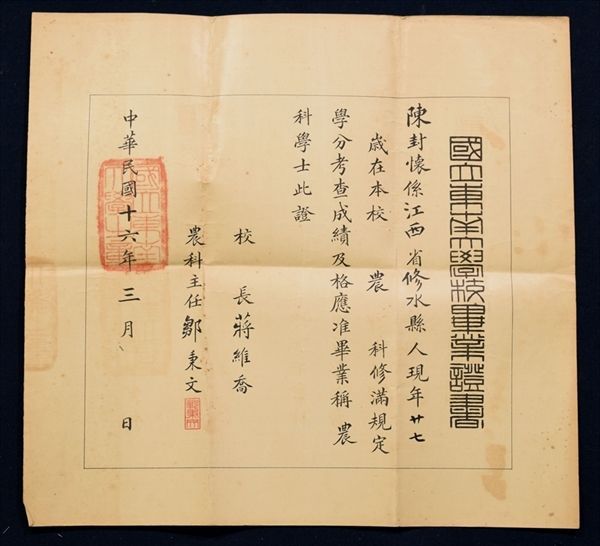 國立東南大學校畢業證書
陳封懷係江西省修水縣人現年廿七
歲在本校 農 科修滿規定
學分考查成績及格應准畢業稱 農
科學士此證
校 長蔣維喬
農科主任鄒秉文
中華民國十六年三月 日